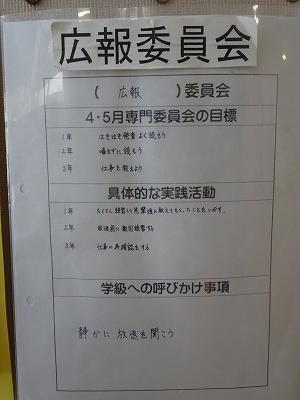 広報委員会
( 広報 )委員会
4・5月専門委員会の目標
1年 はきはき発音よく読もう
2年 噛まずに読もう
3年 仕事を教えよう
具体的な実践活動
1年 たくさん練習して先輩達に教えてもらったことをいかす。
2年 放送前に数回練習する
3年 仕事の再確認をする
学級への呼びかけ事項
静かに放送を聞こう